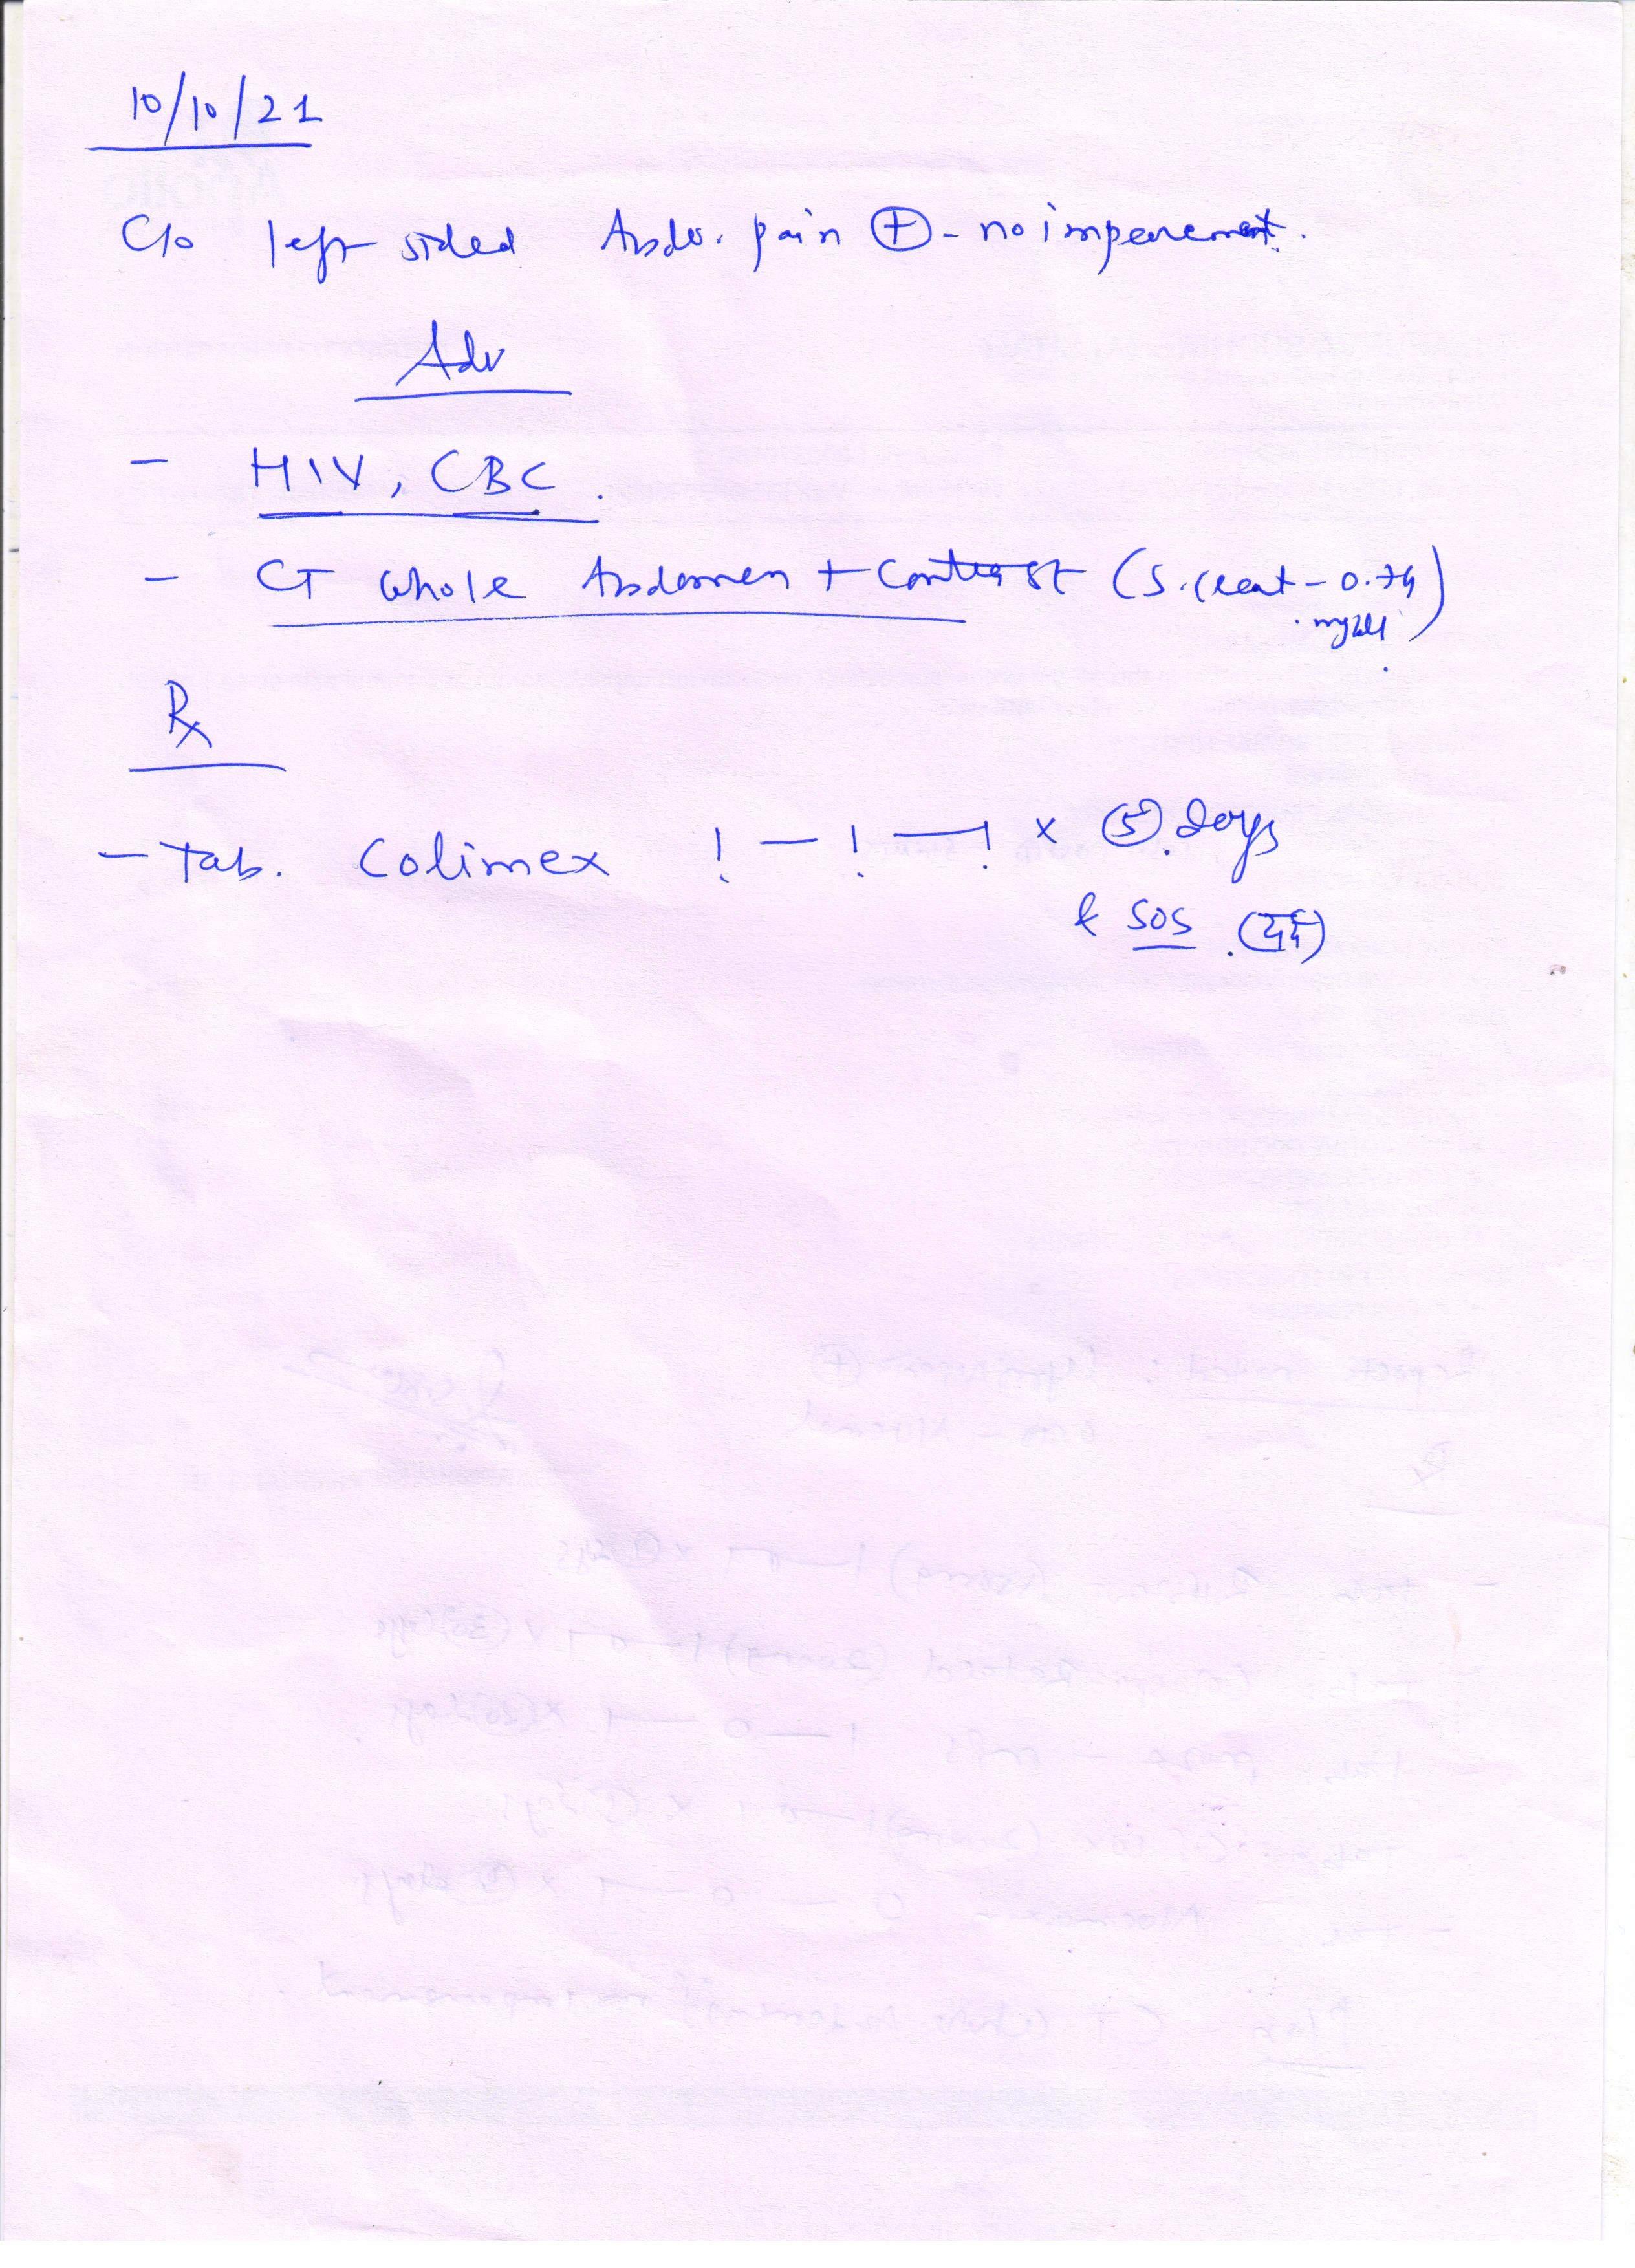 10/10/21
C/o left sided Abdo. pain ⊕ - no imperement.
Adv
- HIV, CBC.
- CT whole Abdomen + Contrast (S. creat - 0.74
mg/dl)
Rx
- Tab. Colimex 1 - 1 - 1 x (5) days
& SOS (दर्द)